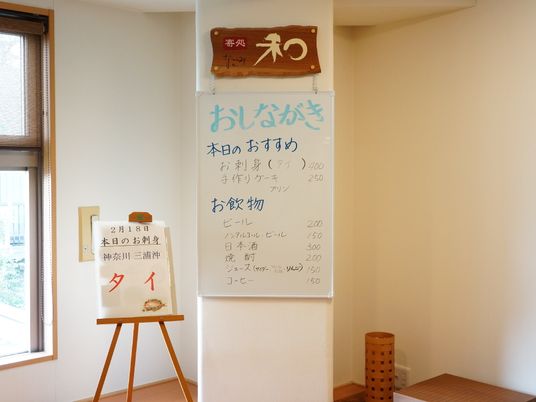 寄処
なごみ
和
おしながき
本日のおすすめ
お刺身(タイ)400
手作りケーキ 250
プリン
お飲物
ビール 200
ノンアルコール・ビール 150
日本酒 300
焼酎 200
ジュース(サイダー りんご) 150
コーヒー 150
2月18日
本日のお刺身
神奈川 三浦沖
タイ